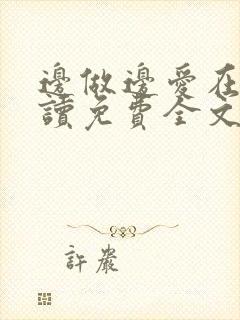 邊做邊愛在
讀免費全文
許嚴